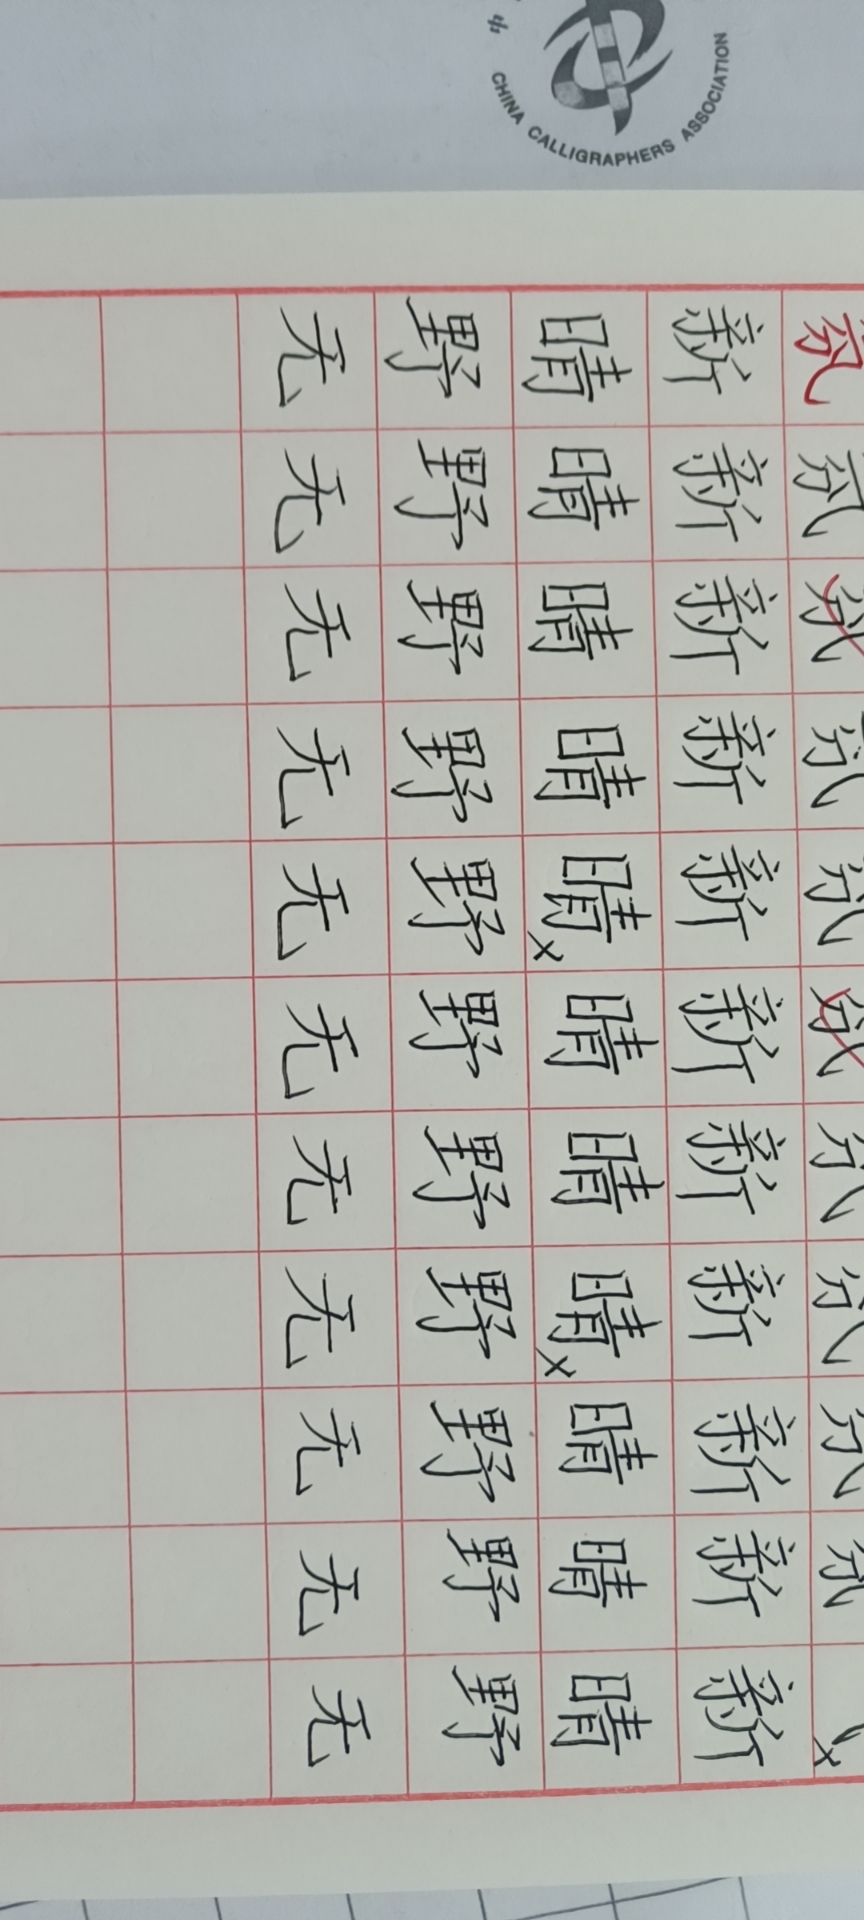 CHINA CALLIGRAPHERS ASSOCIATION
氛氛氛氛氛氛氛氛氛氛
新新新新新新新新新新新
晴晴晴晴晴晴晴晴晴晴晴
野野野野野野野野野野野
无无无无无无无无无无无